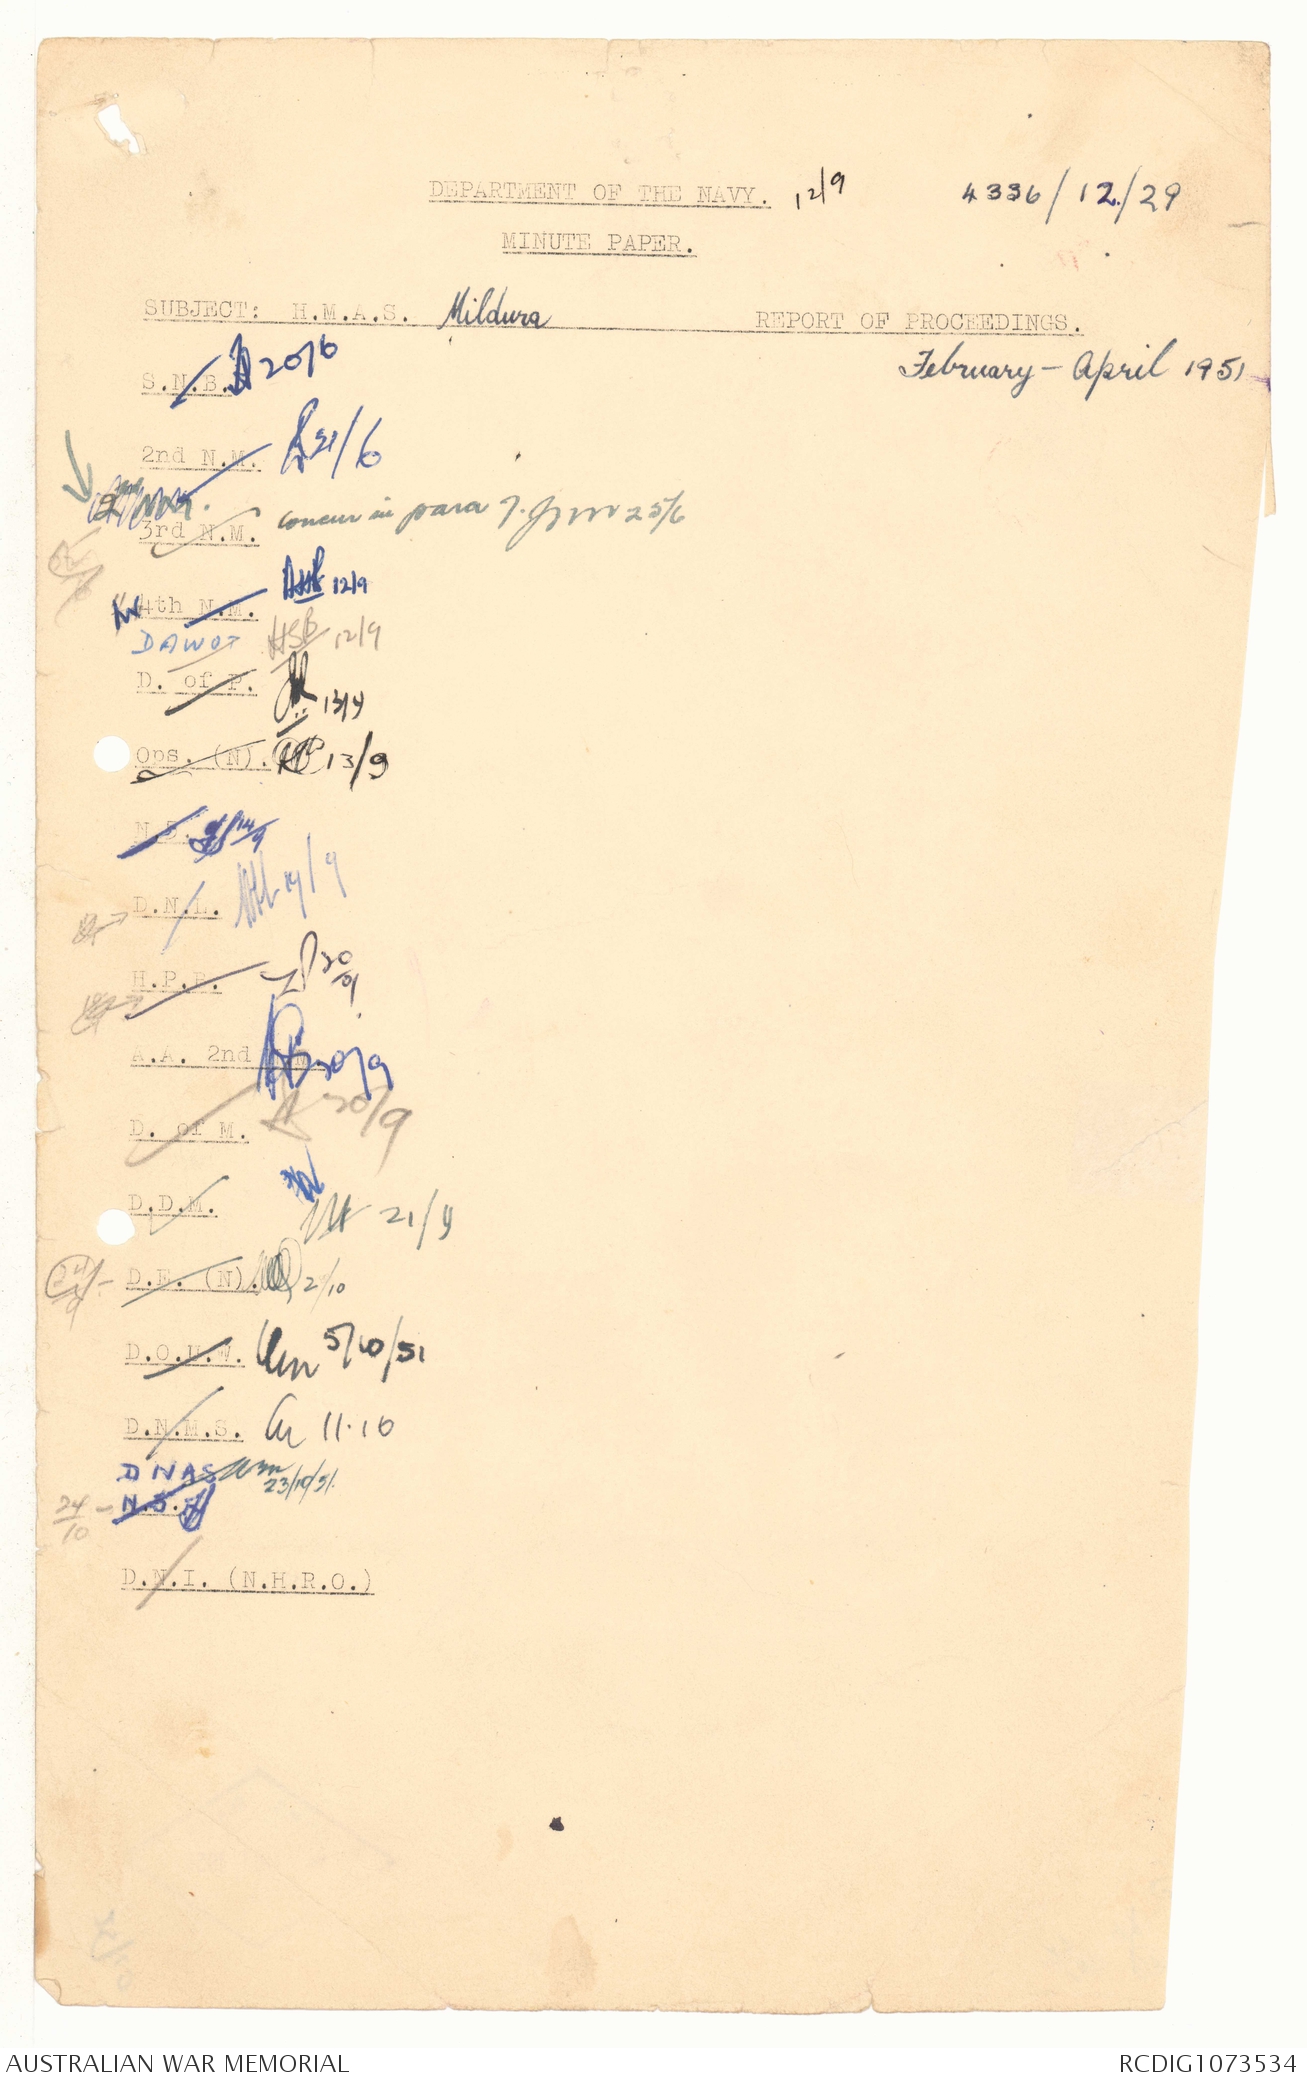 DEPARTMENT OF THE NAVY. 12/9 4336/12/29
MINUTE PAPER.
SUBJECT: H.M.A.S. Mildura REPORT OF PROCEEDINGS.
February - April 1951
S.N.B. 20/6
2nd N.M. 21/6
3rd N.M. concur in para 7. 25/6
4th N.M. 12/9
DAWOT HSB 12/9
D. of P. 13/9
Ops. (N). 13/9
N.S. 14/9
D.N.L. 19/9
H.P.B. 20/9
A.A. 2nd 20/9
D. of M. 20/9
D.D.M.
21/9
24/9 - D.E. (N). 2/10
D.O.H.W. 5/10/51
D.N.M.S. 11.10
DNAS 23/10/51.
24/10 - N.S.
D.N.I. (N.H.R.O.)
AUSTRALIAN WAR MEMORIAL RCDIG1073534